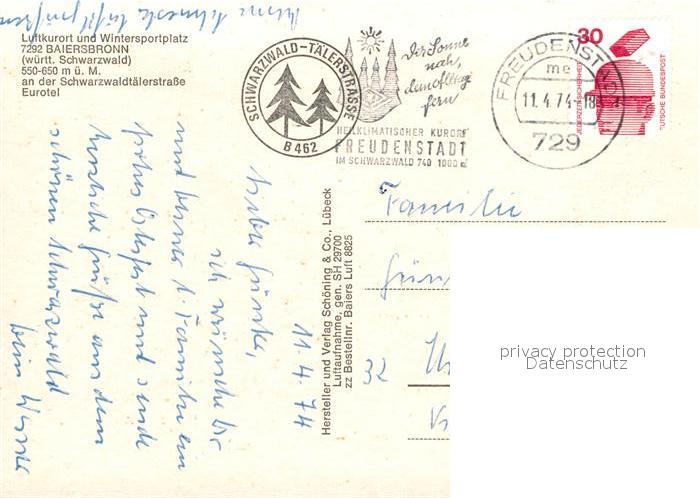 Luftkurort und Wintersportplatz
7292 BAIERSBRONN
(württ. Schwarzwald)
550-650 m ü. M.
an der Schwarzwaldtälerstraße
Eurotel
SCHWARZWALD-TÄLERSTRASSE
B 462
Der Sonne
nah,
dem Alltag
fern
HEILKLIMATISCHER KURORT
FREUDENSTADT
IM SCHWARZWALD 740 1000 m
FREUDENSTADT
me
11.4.74-18
729
30
JEDERZEIT SICHERHEIT
DEUTSCHE BUNDESPOST
Hersteller und Verlag Schöning & Co., Lübeck
Luftaufnahme, gen. SH 29700
zz Bestellnr. Baiers Luft 8825
11.4.74
Lieber
ich wünsche Dir
und Deiner l. Familie ein
frohes Osterfest und sende
herzliche Grüße aus dem
schönen Schwarzwald
Familie
32
privacy protection
Datenschutz